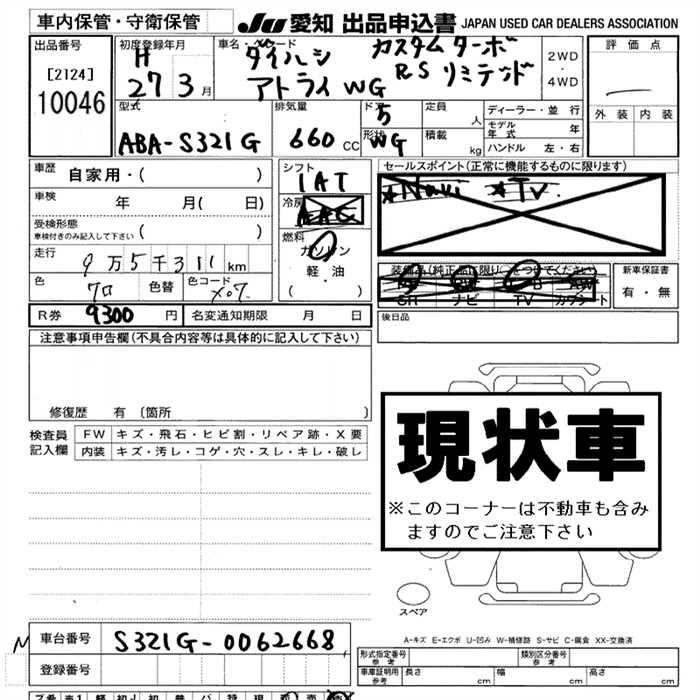 車内保管・守衛保管
JU 愛知 出品申込書 JAPAN USED CAR DEALERS ASSOCIATION
出品番号
[2124]
10046
初度登録年月
H
27 3 月
車名・グレード
ダイハツ カスタムターボ
アトライ WG RS リミテッド
2WD
・
4WD
評価点
外装 内装
型式
ABA-S321G
排気量
660 cc
ドア
5
形状
WG
定員
人
積載
kg
ディーラー・並行
モデル年式 年
ハンドル 左・右
車歴 自家用・( )
車検 年 月( 日)
受検形態
車検付きのみ記入して下さい ( )
走行 9 万 5 千 311 km
色 クロ 色替 色コード X07
シフト
IAT
冷房
AAC
燃料
ガソリン
軽・油
( ・ )
セールスポイント(正常に機能するものに限ります)
★Navi ★TV
装備品(純正品に限り○をつけてください)
SR ナビ TV カワシート
新車保証書
有・無
R券 9300 円 名変通知期限 月 日
後日品
注意事項申告欄(不具合内容等は具体的に記入して下さい)
修復歴 有 [箇所 ]
検査員
記入欄
FW キズ・飛石・ヒビ割・リペア跡・X要
内装 キズ・汚レ・コゲ・穴・スレ・キレ・破レ
現状車
※このコーナーは不動車も含み
ますのでご注意下さい
スペア
A-キズ E-エクボ U-凹み W-補修跡 S-サビ C-腐食 XX-交換済
車台番号 S321G-0062668
登録番号
形式指定番号
参考
類別区分番号
参考
車庫証明用
参考
長さ cm 幅 cm 高さ cm